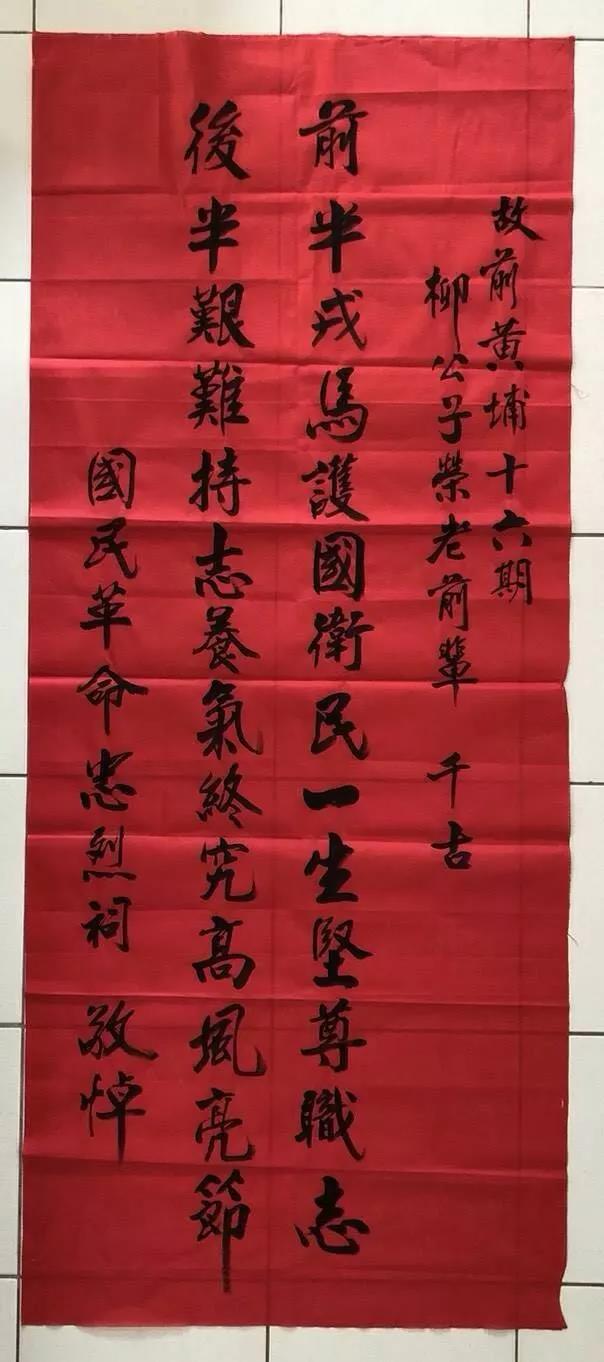 故前黃埔十六期
柳公子榮老前輩 千古
前半戎馬護國衛民一生堅尊職志
後半艱難持志養氣終究高風亮節
國民革命忠烈祠 敬悼